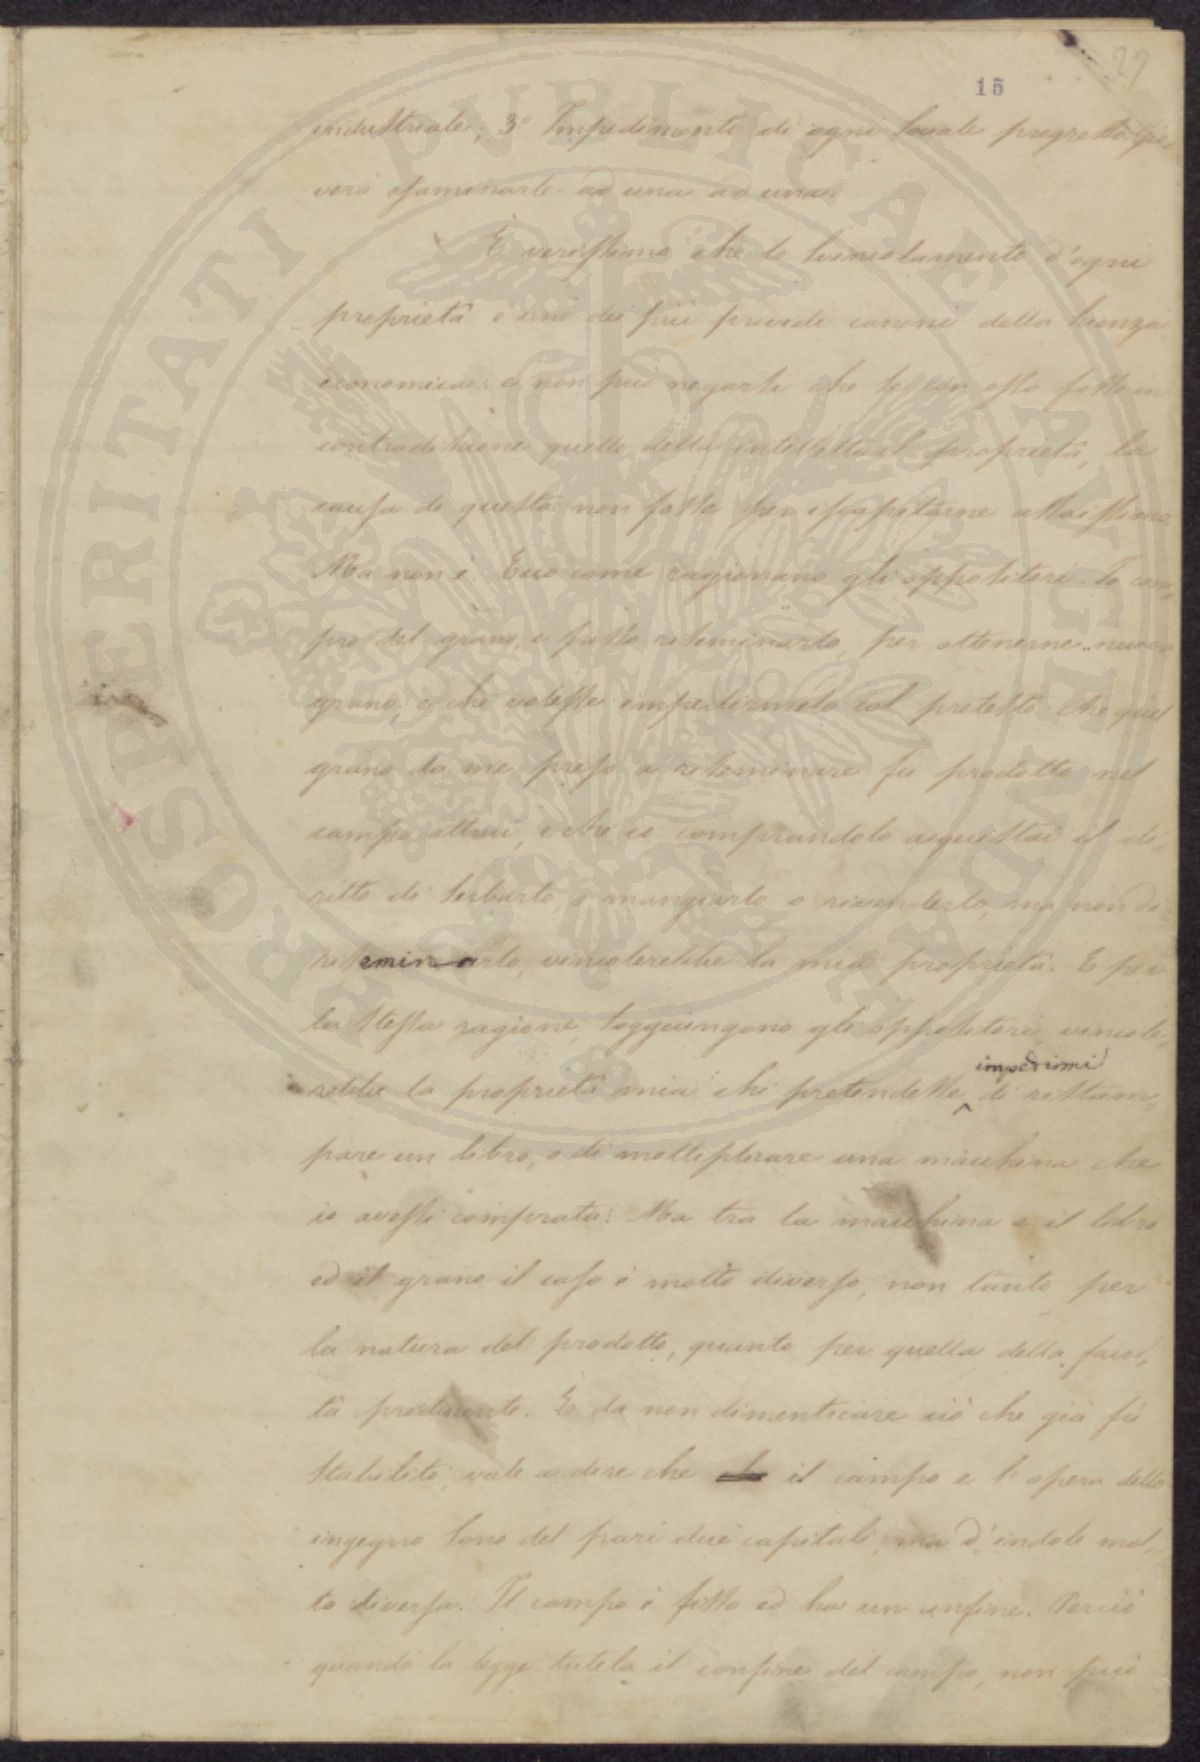 27
15
industriale, 3º Impedimenti di ogni sociale progresso. Gio
verà esaminarle ad una ad una.
È verissimo che lo svincolamento d'ogni
proprietà è uno dei più provvidi canoni della scienza
economica: e non può negarsi che se con esso fosse in
contradizione quello della intellettual proprietà, la
causa di questa non possa per iscapitarne assaissimo.
Ma non è. Ecco come ragionano gli oppositori. Io com,
pro del grano, e posso riseminarlo, per ottenerne nuovo
grano; e chi volesse impedirmelo col pretesto che quel
grano da me preso a riseminare fu prodotto nel
campo altrui, e che io comprandolo acquistai il di,
ritto di serbarlo, o mangiarlo o rivenderlo, ma non di
riseminarlo, vincolerebbe la mia proprietà. E per
la stessa ragione, soggiungono gli oppositori, vincole,
rebbe la proprietà mia chi pretendesse impedirmi di ristam=
pare un libro, o di moltiplicare una macchina che
io avessi comprata. Ma tra la macchina e il libro
ed il grano il caso è molto diverso, non tanto per
la natura del prodotto, quanto per quella della facol,
tà producente. È da non dimenticare ciò che già fu
stabilito, vale a dire che il campo e l'opera dello
ingegno sono del pari due capitali, ma d'indole mol,
to diversa. Il campo è fisso ed ha un confine. Perciò
quando la legge tutela il confine del campo, non può
PUBLICAE
VERITATI
PROSPERITATI